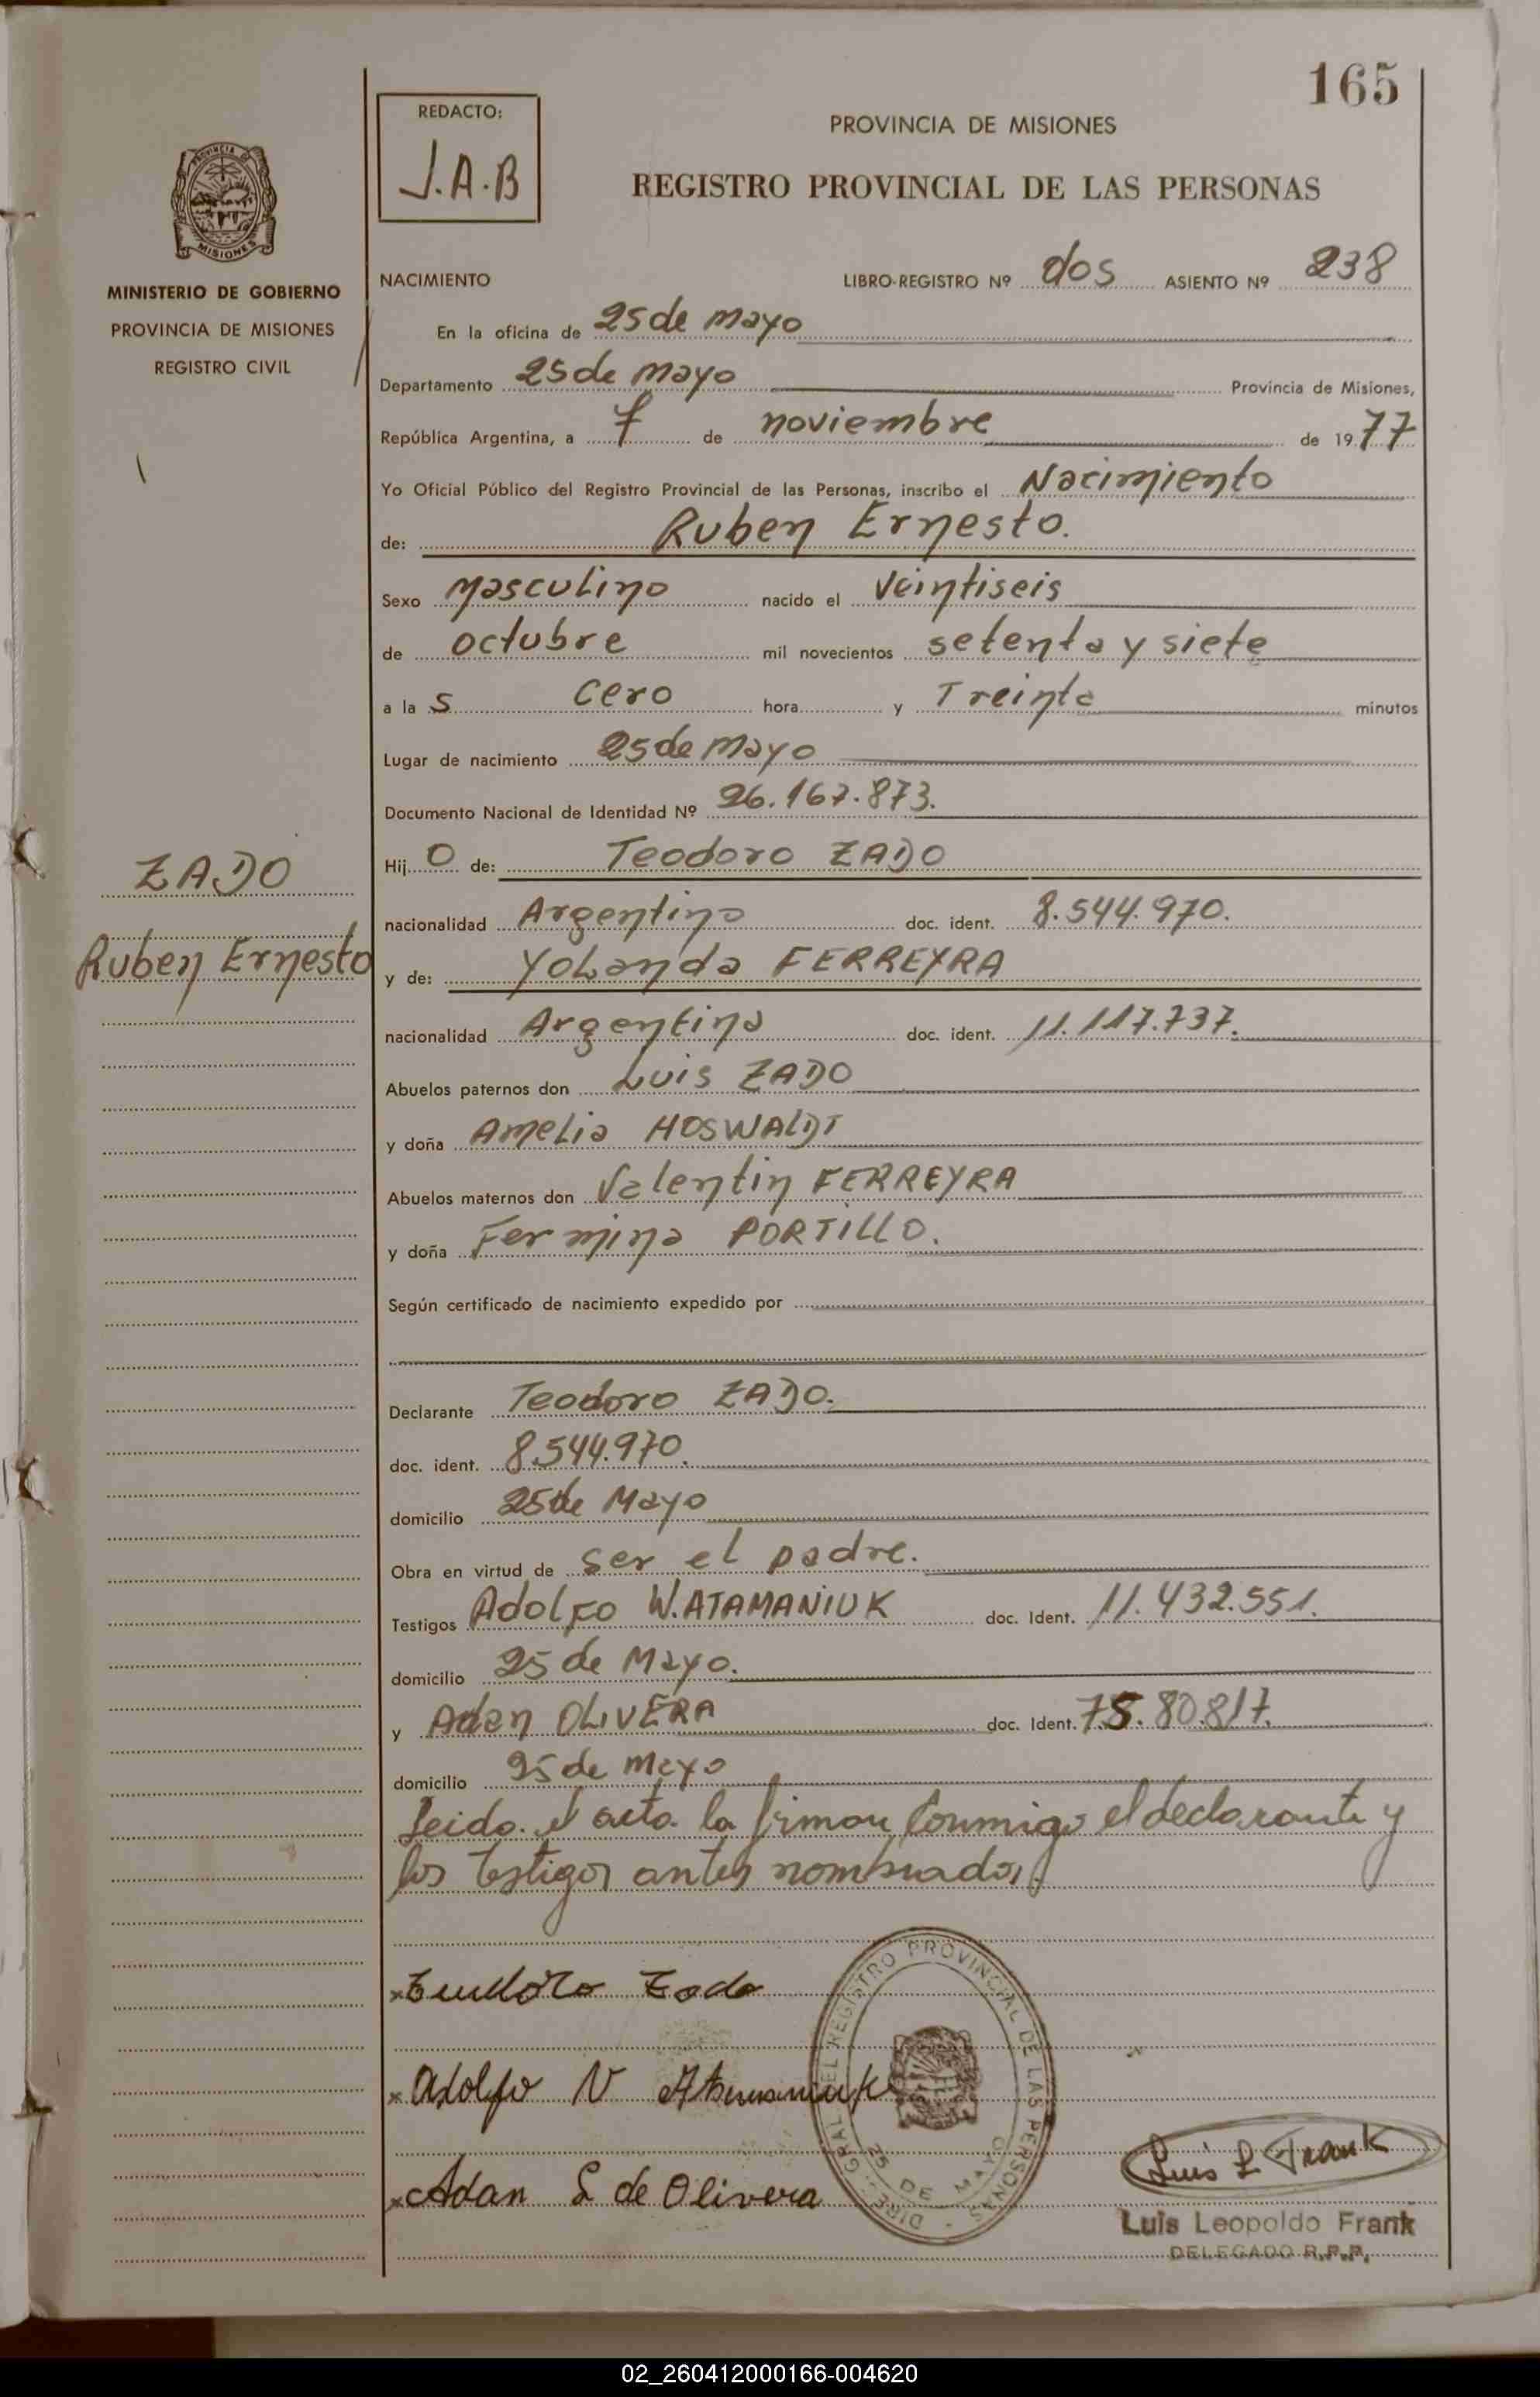 165
REDACTO:
J.A.B
PROVINCIA DE MISIONES
REGISTRO PROVINCIAL DE LAS PERSONAS
PROVINCIA DE
MISIONES
MINISTERIO DE GOBIERNO
PROVINCIA DE MISIONES
REGISTRO CIVIL
NACIMIENTO LIBRO-REGISTRO Nº dos ASIENTO Nº 238
En la oficina de 25 de Mayo
Departamento 25 de Mayo Provincia de Misiones,
República Argentina, a 7 de noviembre de 1977
Yo Oficial Público del Registro Provincial de las Personas, inscribo el Nacimiento
de: Ruben Ernesto.
Sexo masculino nacido el Veintiseis
de octubre mil novecientos setenta y siete
a la s cero hora y Treinta minutos
Lugar de nacimiento 25 de Mayo
Documento Nacional de Identidad Nº 26.167.873.
Hij o de: Teodoro ZADO
nacionalidad Argentino doc. ident. 8.544.970.
y de: Yolanda FERREYRA
nacionalidad Argentina doc. ident. 11.117.737.
Abuelos paternos don Luis ZADO
y doña Amelia HOSWALDT
Abuelos maternos don Valentin FERREYRA
y doña Fermina PORTILLO.
Según certificado de nacimiento expedido por
Declarante Teodoro ZADO.
doc. ident. 8.544.970.
domicilio 25 de Mayo
Obra en virtud de ser el padre.
Testigos Adolfo W. ATAMANIUK doc. Ident. 11.432.551.
domicilio 25 de Mayo.
y Adan OLIVERA doc. Ident. 7.5.80.817.
domicilio 25 de Mayo
Leida el acta la firman conmigo el declarante y
los testigos antes nombrados
ZADO
Ruben Ernesto
x Teodoro Zado
x Adolfo V Atamaniuk
x Adan S de Olivera
DIREC. GRAL. DEL REGISTRO PROVINCIAL DE LAS PERSONAS
25 DE MAYO
Luis L Frank
Luis Leopoldo Frank
DELEGADO R.P.P.
02_260412000166-004620